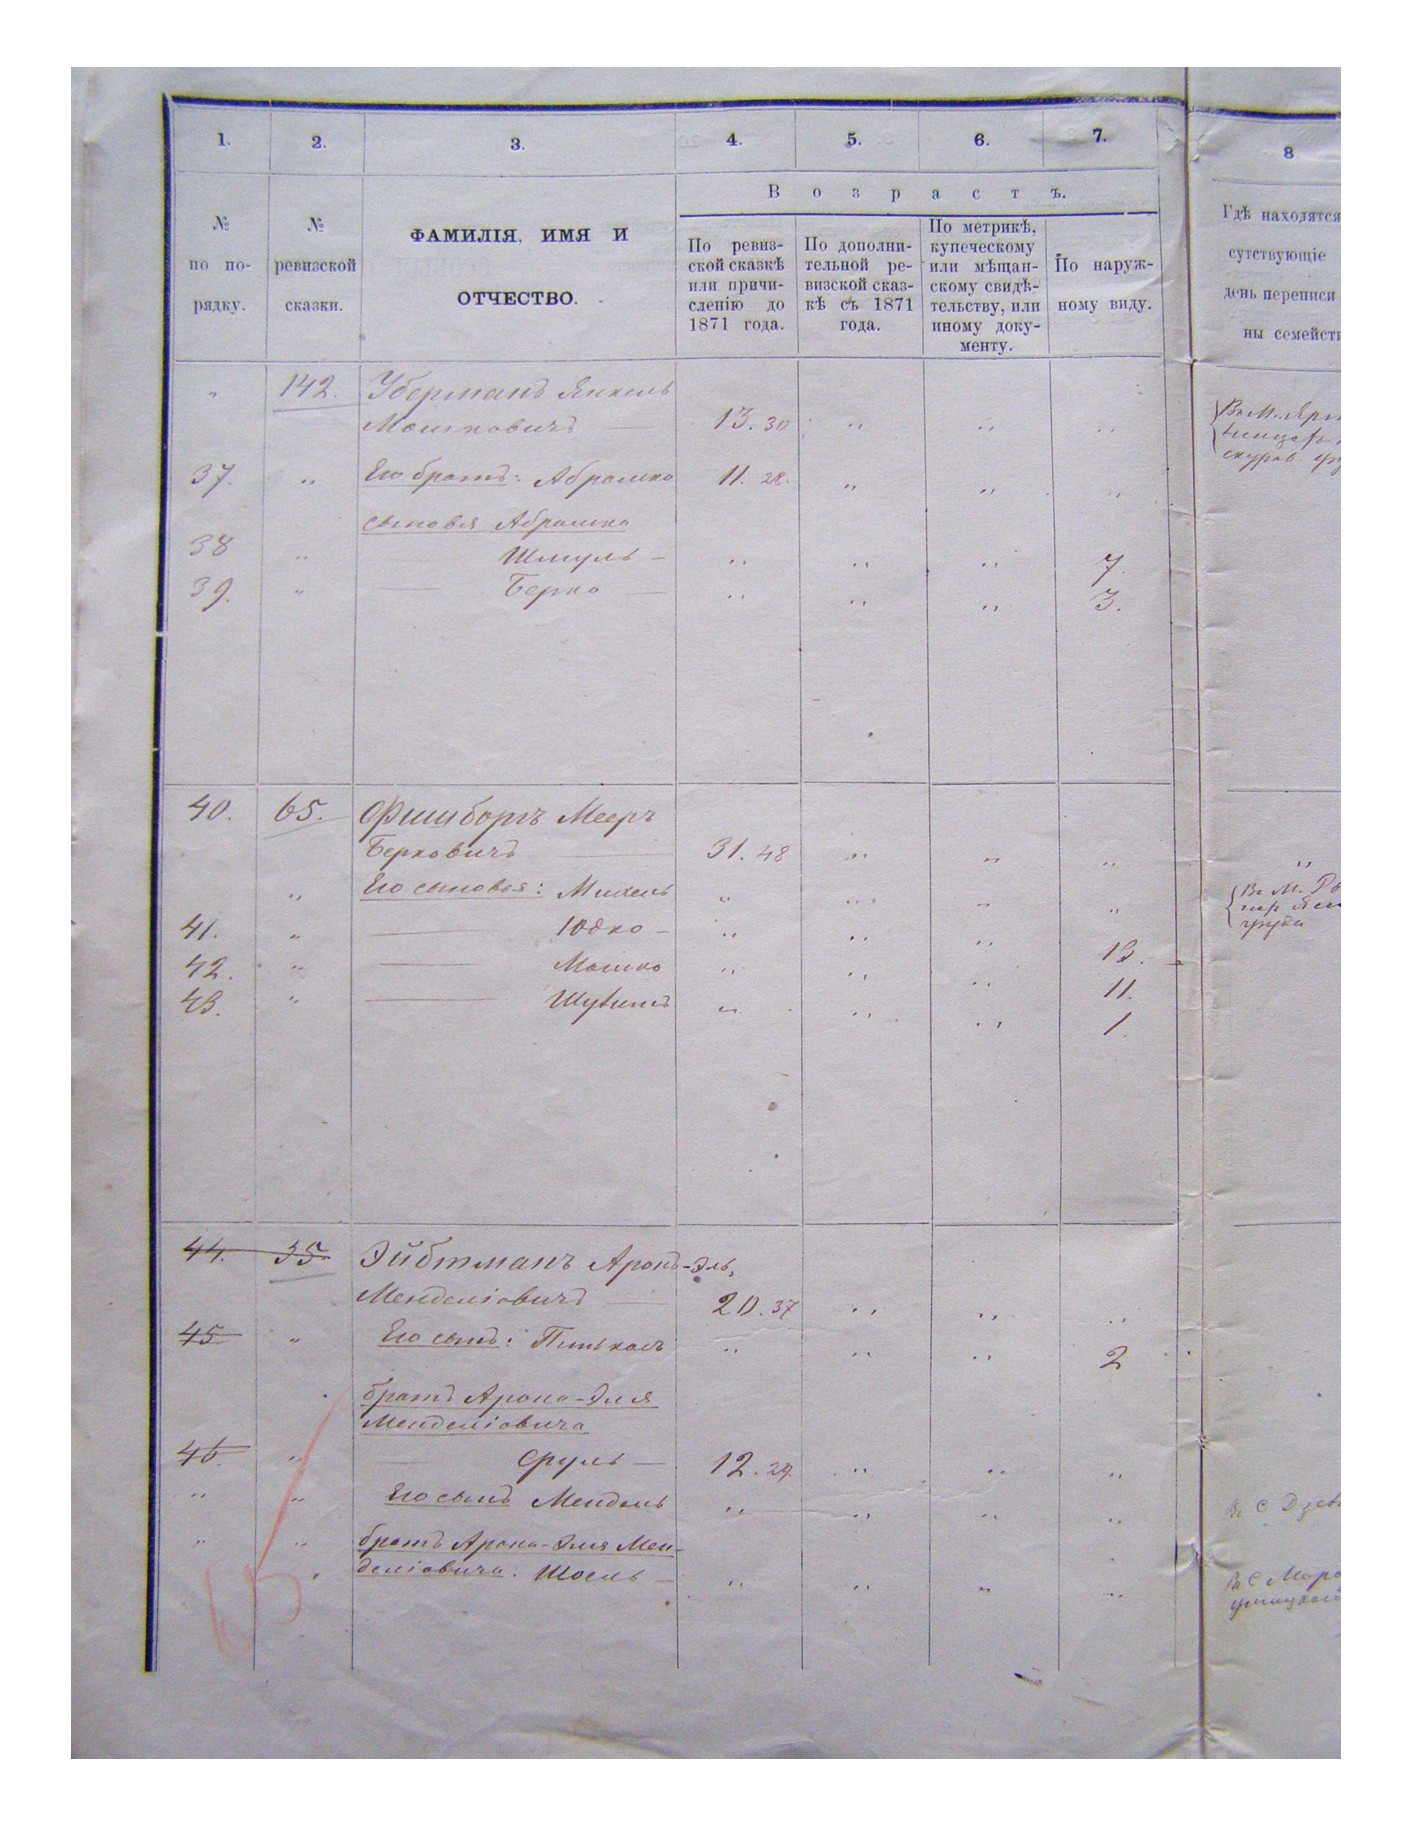 1. 2. 3. 4. 5. 6. 7. 8
№ по по- рядку.
№ ревизской сказки.
ФАМИЛІЯ, ИМЯ И ОТЧЕСТВО.
Возрастъ.
По ревиз-
ской сказкѣ
или причи-
сленію до
1871 года.
По дополни-
тельной ре-
визской сказ-
кѣ съ 1871
года.
По метрикѣ,
купеческому
или мѣщан-
скому свидѣ-
тельству, или
иному доку-
менту.
По наруж-
ному виду.
Гдѣ находятся
сутствующіе
день переписи
ны семейст
„ 142. Уберманъ Янкель
Мошковичъ 13. 30 „ „ „
37. „ Его братъ: Абрамко 11. 28. „ „ „
сыновья Абрамка
38 „ Шмуль — „ „ „ 7.
39. „ — Берко — „ „ „ 3.
40. 65. Фишборгъ Мееръ
Берковичъ — 31. 48 „ „ „ „
„ Его сыновья: Михель „ „ „ „ Въ М.
41. „ — Юдко — „ „ „ 13.
42. „ — Мошко „ „ „ 11.
43. „ — „ „ „ 1.
44. 35. Эйбтманъ Аронъ-Эль,
Менделіовичъ — 20. 37 „ „ „
45 „ Его сынъ: Пинькасъ „ „ „ 2
братъ Арона-Эля
Менделіовича
46. „ — Сруль — 12. 29. „ „ „
„ „ Его сынъ Мендель „ „ „ „ Въ С
„ „ братъ Арона-Эля Мен-
деліовича: Шоель — „ „ „ „ Въ С
65